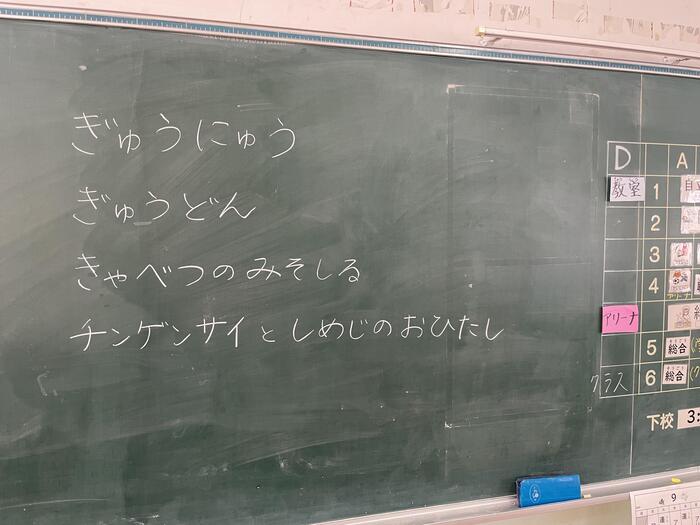 ぎゅうにゅう
ぎゅうどん
きゃべつのみそしる
チンゲンサイとしめじのおひたし
D A
教室 1 自
2
3
4
アリーナ
5 総合
クラス 6 総合
下校 3:
9